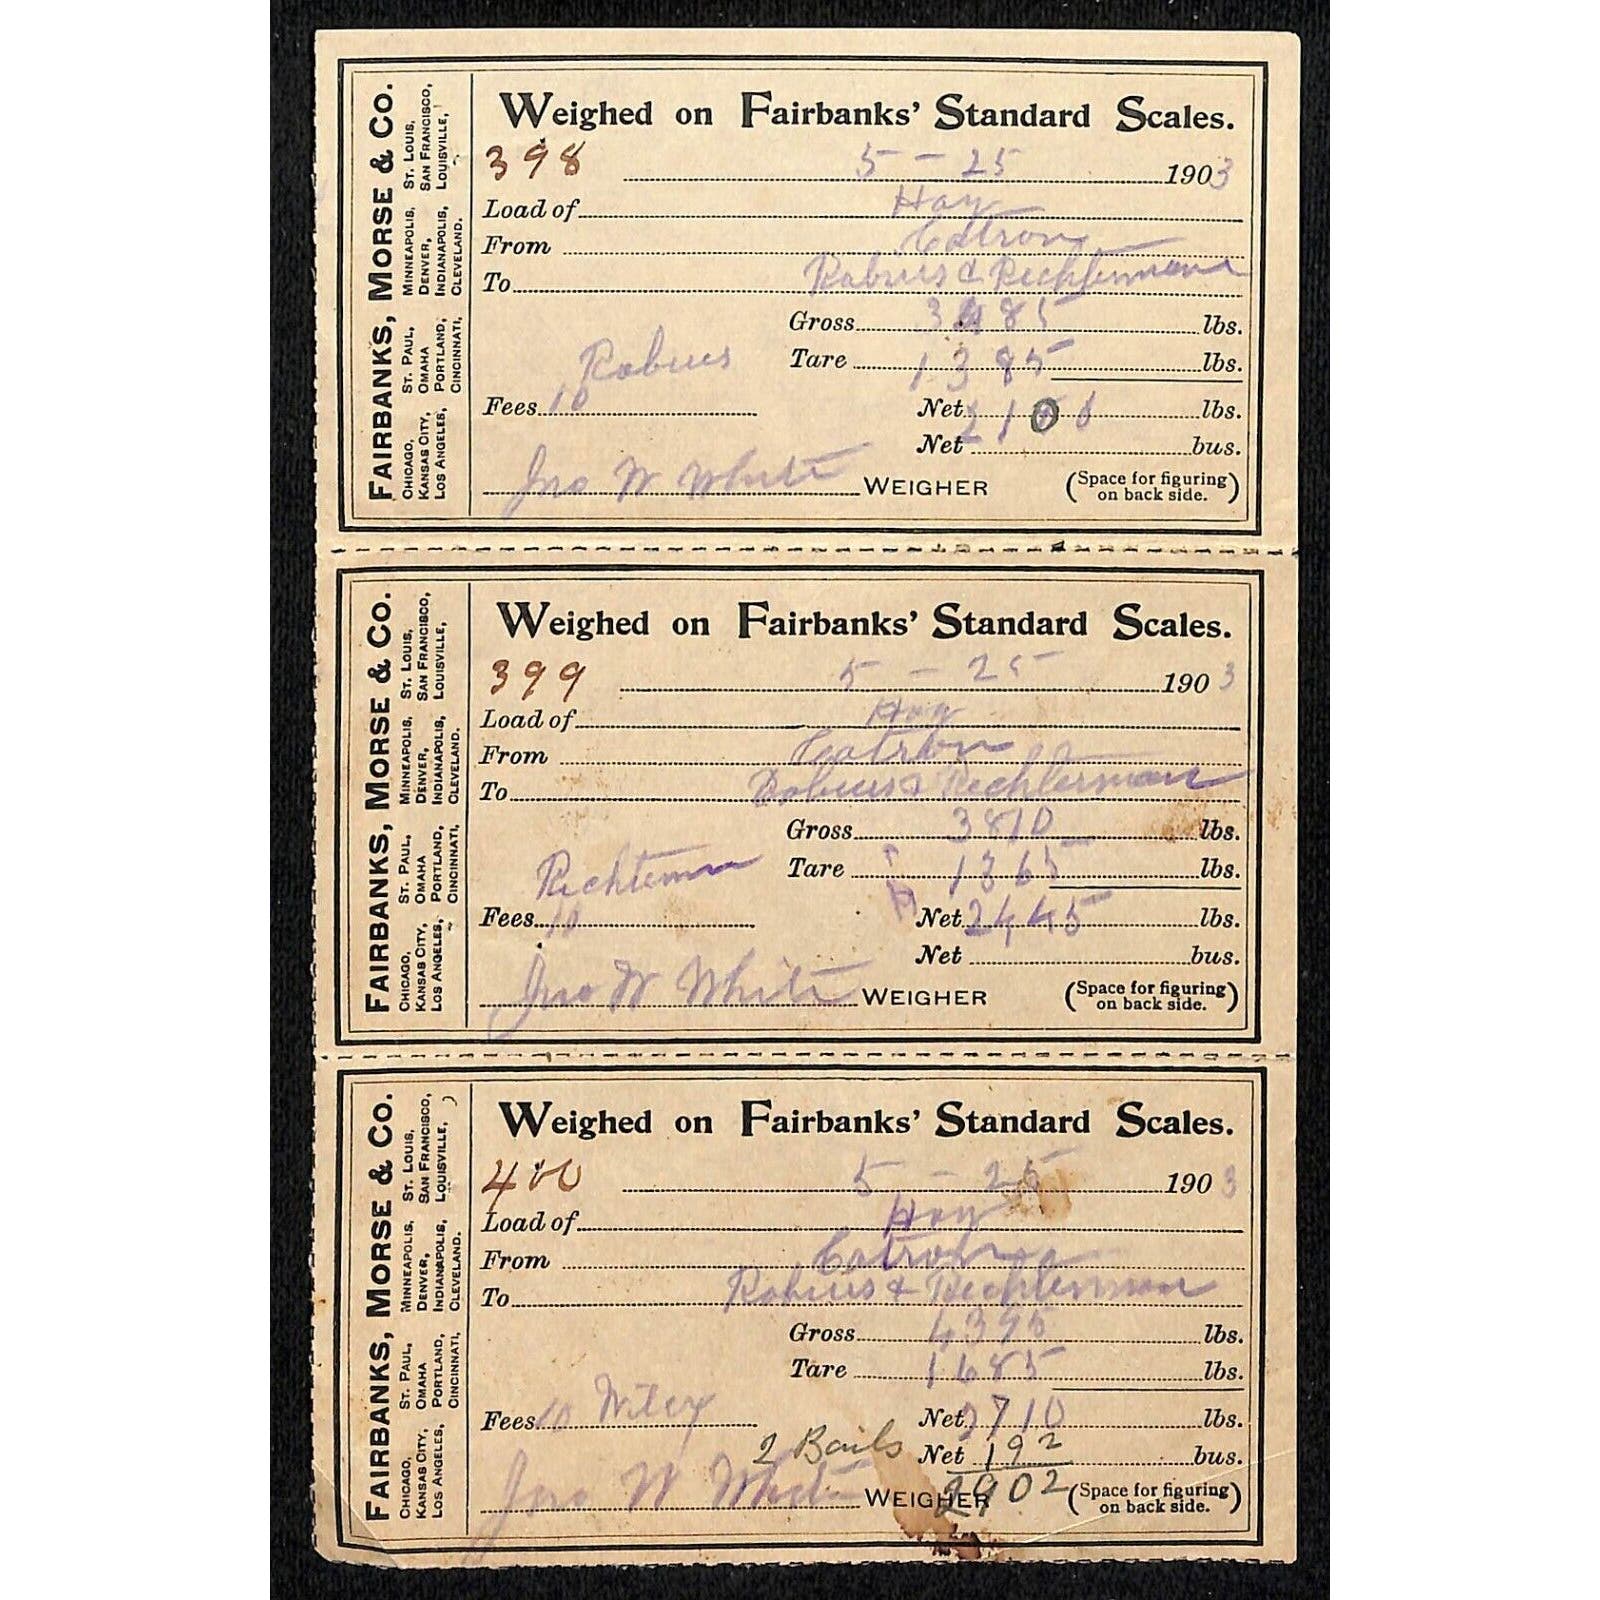 FAIRBANKS, MORSE & CO.
CHICAGO, ST. PAUL, MINNEAPOLIS, ST. LOUIS,
KANSAS CITY, OMAHA DENVER, SAN FRANCISCO,
LOS ANGELES, PORTLAND, INDIANAPOLIS, LOUISVILLE,
CINCINNATI, CLEVELAND.
Weighed on Fairbanks' Standard Scales.
398 5 - 25 1903
Load of Hay
From Catron
To Robius & Richterman
Gross 3485 lbs.
Robius Tare 1385 lbs.
Fees 10 Net 2100 lbs.
Net bus.
Jno W White WEIGHER (Space for figuring on back side.)
FAIRBANKS, MORSE & CO.
CHICAGO, ST. PAUL, MINNEAPOLIS, ST. LOUIS,
KANSAS CITY, OMAHA DENVER, SAN FRANCISCO,
LOS ANGELES, PORTLAND, INDIANAPOLIS, LOUISVILLE,
CINCINNATI, CLEVELAND.
Weighed on Fairbanks' Standard Scales.
399 5 - 25 1903
Load of Hay
From Catron
To Robius & Richterman
Gross 3810 lbs.
Tare 1365 lbs.
Fees 10 Net 2445 lbs.
Net bus.
Jno W White WEIGHER (Space for figuring on back side.)
FAIRBANKS, MORSE & CO.
CHICAGO, ST. PAUL, MINNEAPOLIS, ST. LOUIS,
KANSAS CITY, OMAHA DENVER, SAN FRANCISCO,
LOS ANGELES, PORTLAND, INDIANAPOLIS, LOUISVILLE,
CINCINNATI, CLEVELAND.
Weighed on Fairbanks' Standard Scales.
400 5 - 25 1903
Load of Hay
From Catron
To Robius & Richterman
Gross 4395 lbs.
Tare 1685 lbs.
Fees 10 Wiley Net 2710 lbs.
2 Bails Net 192 bus.
Jno W White WEIGHER 2902 (Space for figuring on back side.)